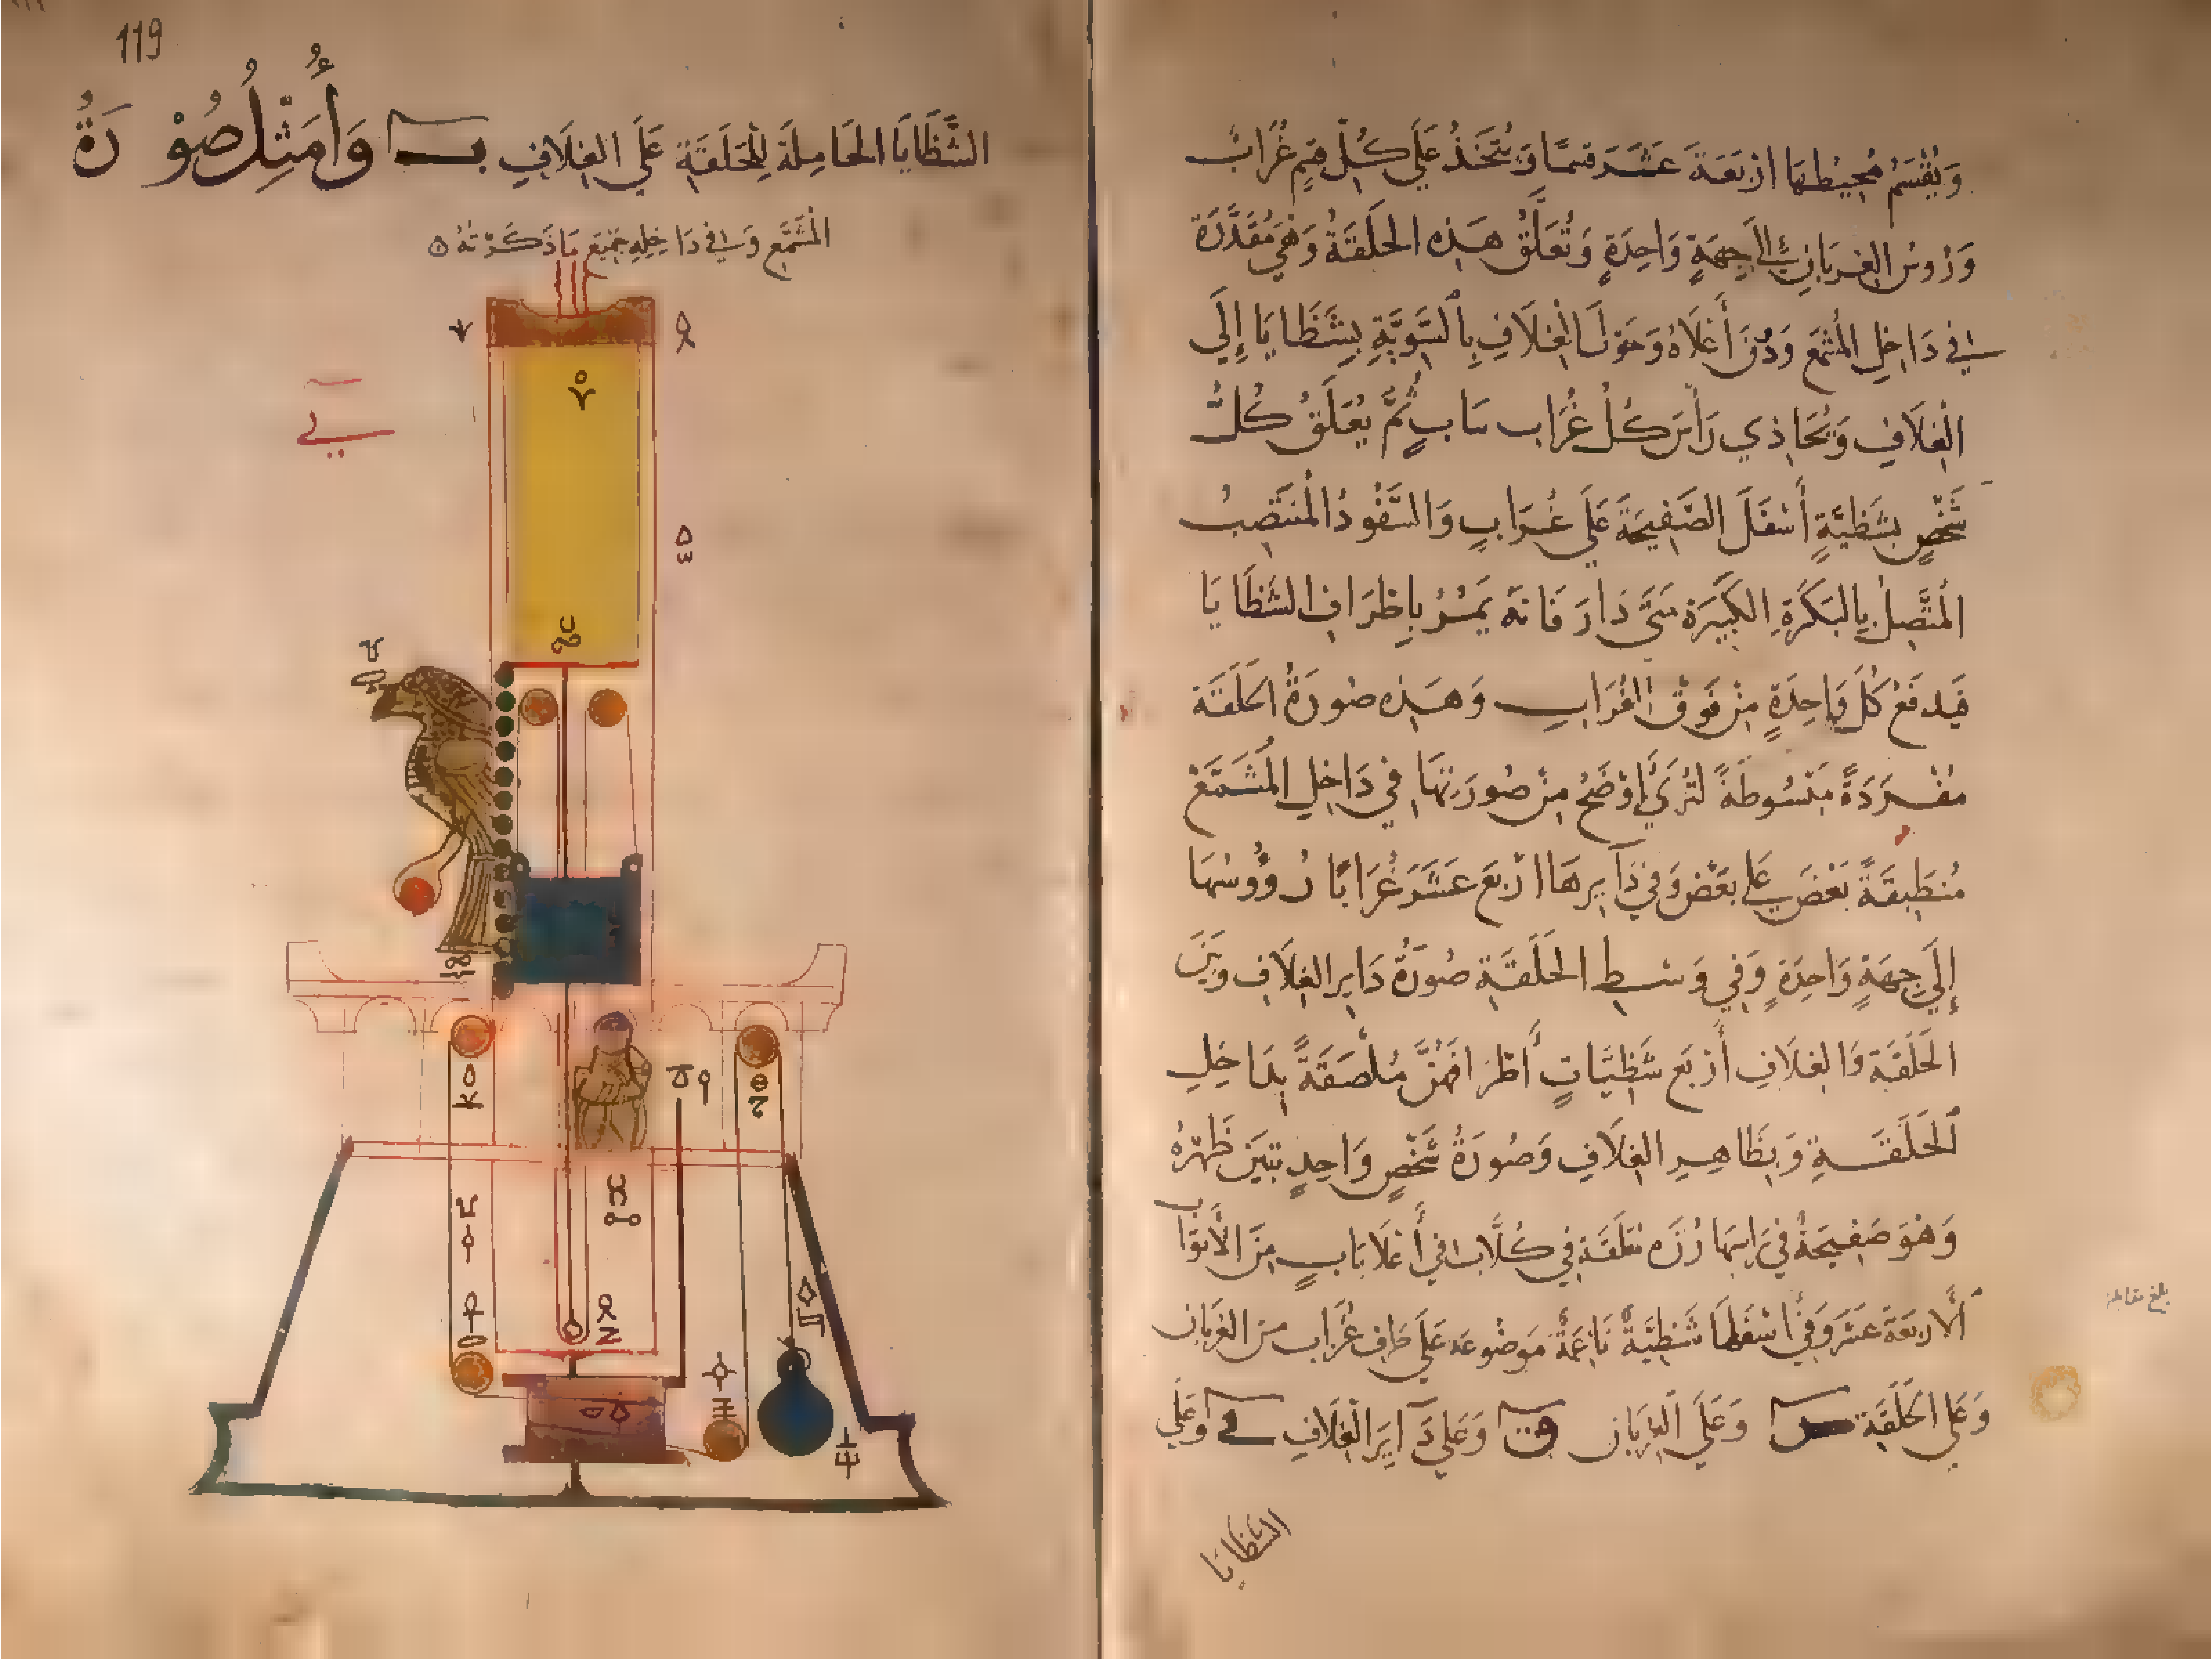 وَيُقْسَمُ مُحِيْطهَا اَرْبَعَةَ عَشَرَ قسمًا وَيُتَّخَذُ عَلَى كُلِّ قِسْمٍ غُرَابٌ
وَرُؤوسُ الغِربَانِ اِلَى جِهَةٍ وَاحِدَةٍ وَتُعَلَّقُ هَذِه الحَلَقَةُ وَهِيَ مُقَدَّرَة
فِي دَاخِلِ المُشمَّع وَدُونَ أَعْلَاهُ وَحَوْلَ الْغِلَافِ بِالسَّوِيَّةِ بِشَظَايَا إِلَى
الْغِلَافِ وَيُحَاذِي رَأْسَ كُلّ غُرَاب بَابٌ ثُمَّ يُعَلَّقُ كُلُّ
شَخْصٍ بِشَظِيَّةٍ أَسْفَلَ الصَّفِيحَة عَلَى غُرَابٍ وَالسَّفُّودُ المُنْتَصِبُ
المُتَّصِلُ بِالبَكَرَةِ الكَبِيرَة مَتَى دَارَ فَانه يَمُرُّ بِاطْرَافِ الشَّظَايَا
فَيَدفَعُ كُلَّ وَاحِدَةٍ مِنْ فَوْقِ الْغُرَابِ وَهَذِه صُورَةُ الحَلَقَة
مُفْرَدَةً مَبْسُوطَةً لتُرَى اَوْضَحُ مِنْ صُورَتِهَا فِي دَاخِلِ المُشَمَّعْ
مُنْطَبِقَةً بَعْضَ عَلى بعْض وَفِي دَآيرهَا ارْبَعَ عَشَرَ غُرَابًا رُؤُوسُهَا
إِلَى جِهَةٍ وَاحِدَةٍ وَفِي وَسْطِ الحَلَقَةِ صُورَةُ دَايِرِ الغِلَافِ وَبَيْنَ
الحَلَقَة وَالغِلَافِ أَرْبَع شَظِيَّاتٍ أَطْرَافهُنَّ مُلْصَقَةً بِدَاخِلِ
الحَلَقَةِ وَبِظَاهِرِ الغِلَافِ وَصُورَةُ شَخْصٍ وَاحِدٍ تبَيَّن ظَهْرُهُ
وَهُوَ صَفِيحَةٌ فِي رَاسِهَا رُزَّه مُعَلَّقَة فِي كُلَّاب فِي أَعْلَا بَابٍ مِنَ الْأَبْوَاب
الاربعَة عَشَر وَفِي اسْفَلِهَا شَظِيَّةٌ نَاعِمَةٌ مَوضُوعَة عَلَى طرف غُرَاب مِن الغِربَان
وَعَلى الحَلَقَة س وَعَلَى الغِربَان ق وَعَلى دَآيِرِ الْغِلَافِ في وَعَلَى
الشظايا
بلغ مقابلة
119
الشَّظَايَا الحَامِلَة لِلْحَلَقَةِ عَلَى الغِلَافِ بــ وَأُمَثِّلُ صُوْرَةُ
المُشَمَّع وَفي دَاخِلِهِ جَمِيْعَ مَا ذَكَرْتهُ ه
في